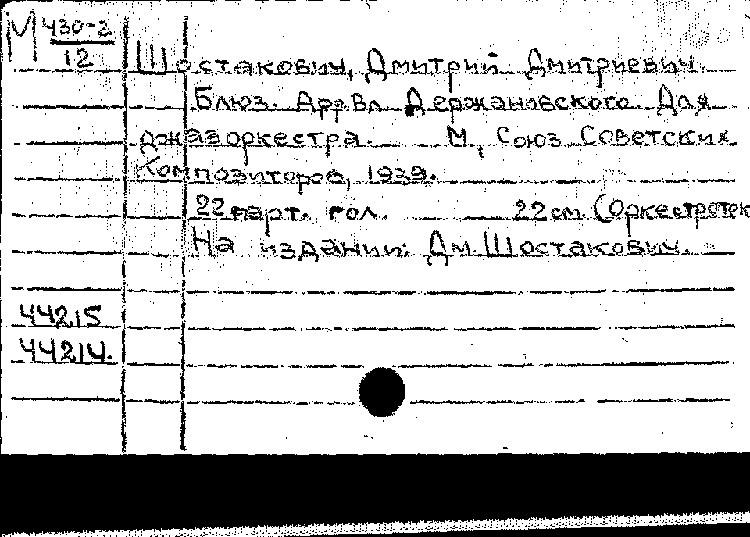 М 430-2
12
Шостакович, Дмитрий Дмитриевич.
Блюз. Арр Вл. Держановского. Для
джазоркестра. М., Союз Советских
Композиторов, 1939.
22 парт. гол. 22 см (Оркестротек
На издании: Дм. Шостакович.
44215
44214.